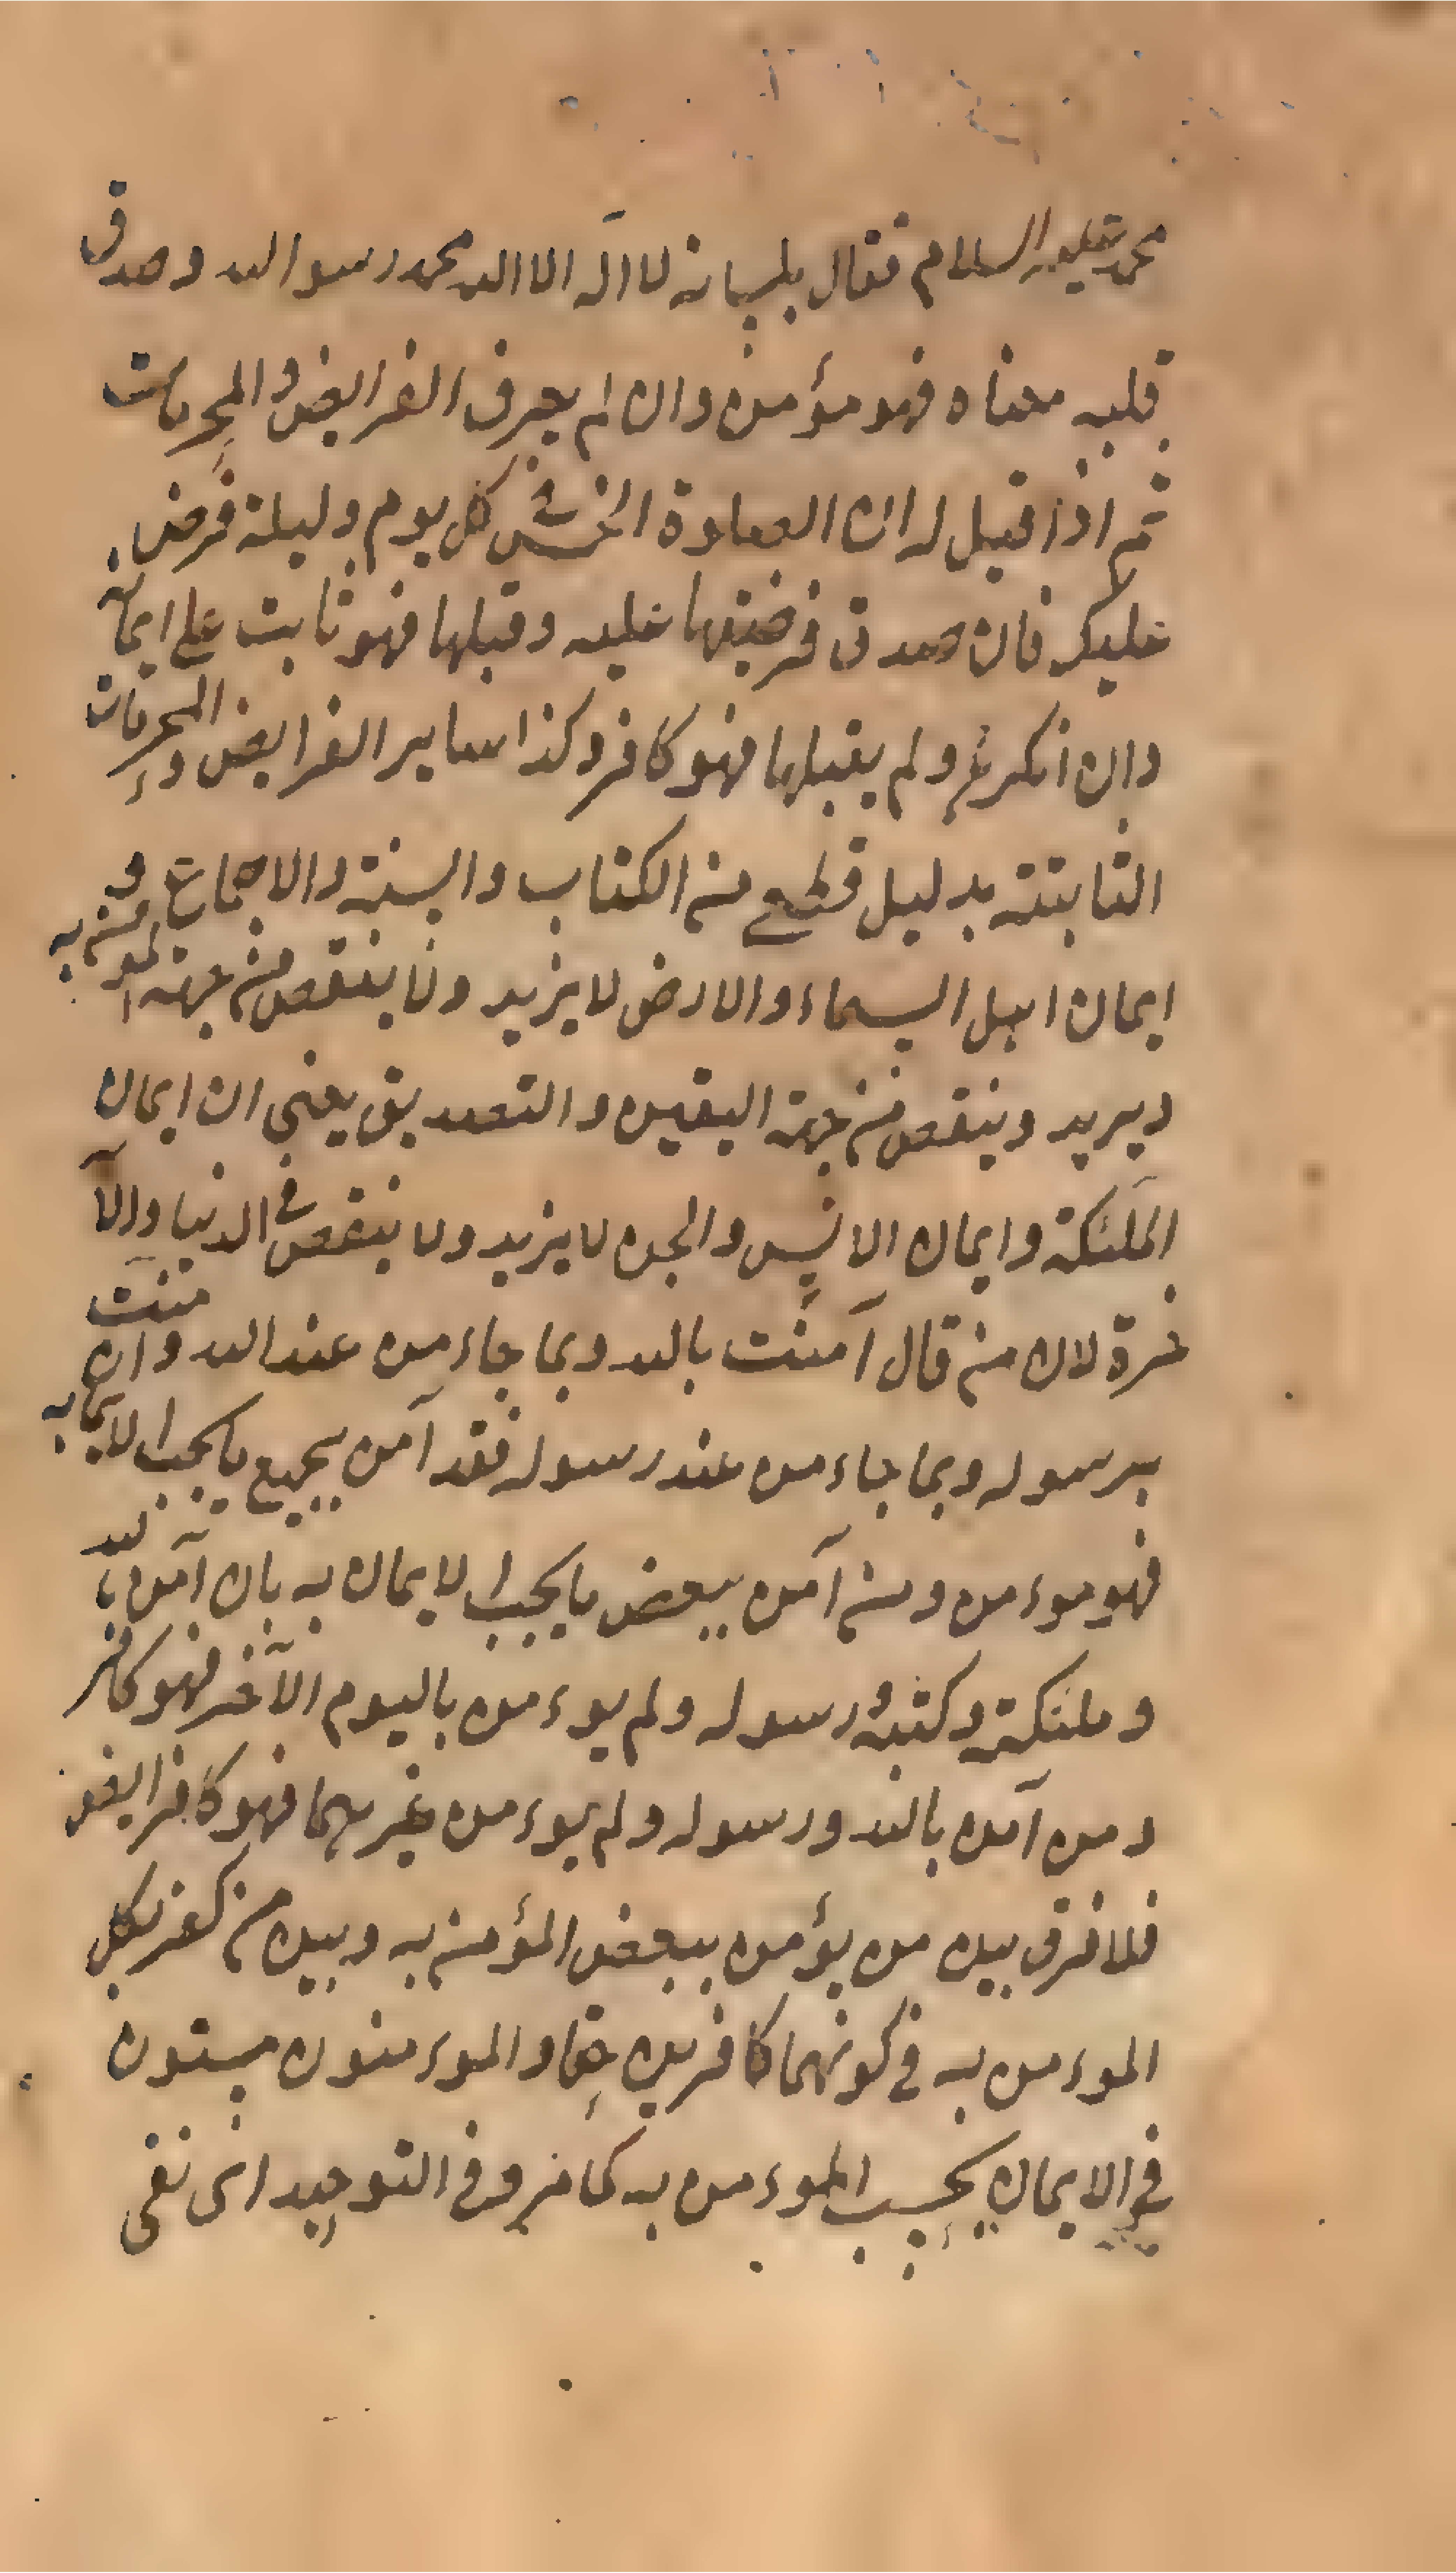 محمد عليه السلام فقال بلسانه لا اله الا الله محمد رسوا الله وصدق
قلبه معناه فهو مؤمن وان لم يعرف الفرايض والمحرمات
ثم اذا قيل له ان الصلوة الخمس في كل يوم وليلة فرض
عليك فان صدق فرضيتها عليه وقبلها فهو ثابت على ايمانه
وان انكرها ولم يقبلها فهو كافر وكذا ساير الفرايض والمحرمات
الثابتة بدليل قطعي من الكتاب والسنة والاجماع و
ايمان اهل السماء والارض لا يزيد ولا ينقص من جهة المومن به
ويزيد وينقص من جهة اليقين والتصديق يعني ان ايمان
الملئكة وايمان الانس والجن لا يزيد ولا ينقص في الدنيا والآ
خرة لان من قال آمنت بالله وبما جاء من عند الله وآمنت
برسوله وبما جاء من عند رسوله فقد آمن بجميع ما يجب الايمان به
فهو موءمن ومن آمن ببعض ما يجب الايمان به بان آمن بالله
وملئكته وكتبه ورسوله ولم يوءمن باليوم الآخر فهو كافر
ومن آمن بالله ورسوله ولم يوءمن بغيرهما فهو كافر ايضا
فلا فرق بين من يؤمن ببعض المؤمن به وبين من كفر بكل
الموءمن به في كونهما كافرين حقا والموءمنون مستون
في الايمان بحسب الموءمن به كما مر وفي التوحيد اى نفى